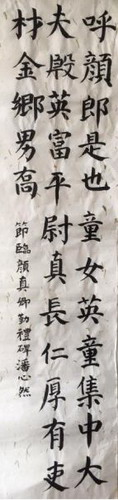 呼顏郎是也童女英童集中大
夫殿英富平尉真長仁厚有吏
材金鄉男高
節臨顏真卿勤禮碑潘心然